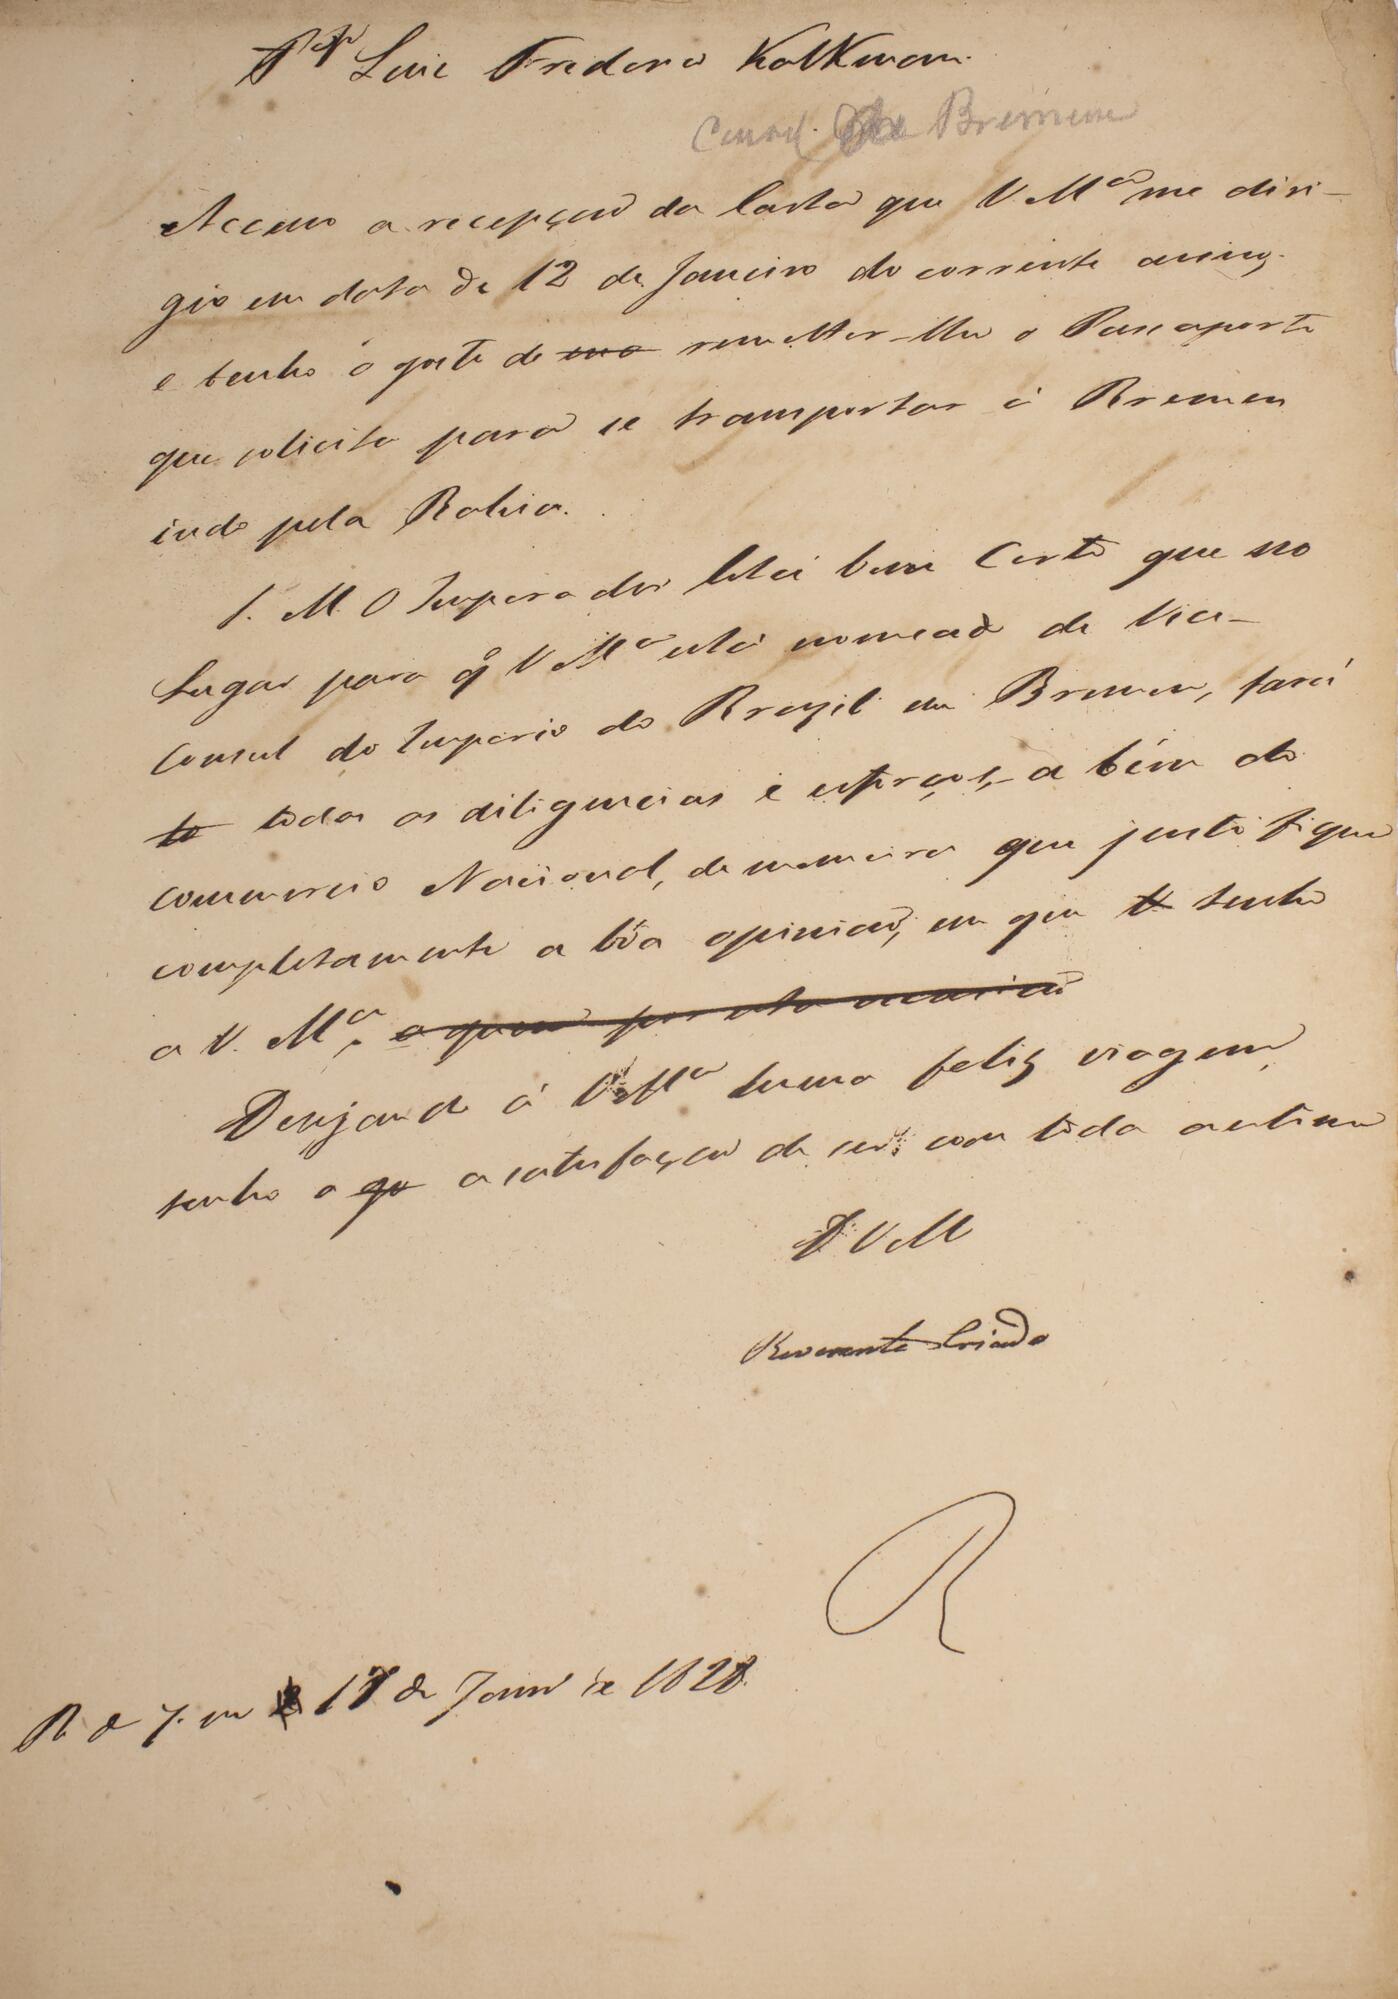 Luis Frederico Kalkmann.
Consul Bremen
Accuso a recepção da Carta que V. Mce me diri-
gio em data de 12 de Janeiro do corrente anno,
e tenho o gosto de remetter-lhe o Passaporte
que solicita para se transportar á Bremen
indo pela Bahia.
S. M. O Imperador está bem Certo que no
Lugar para q V Mce está nomeado de Vice-
Consul do Imperio do Brazil em Bremen, fará
to todas as diligencias e esforços, a bém do
commercio Nacional, de maneira que justifique
completamente a bôa opinião, em que tenho
a V. Mce, a quem por esta occasião
Dezejando á V. Mce huma feliz viagem,
tenho a go a satisfação de ser com toda a estima
D V M
Reverente Criado
R de J. em 17 de Janro de 1828